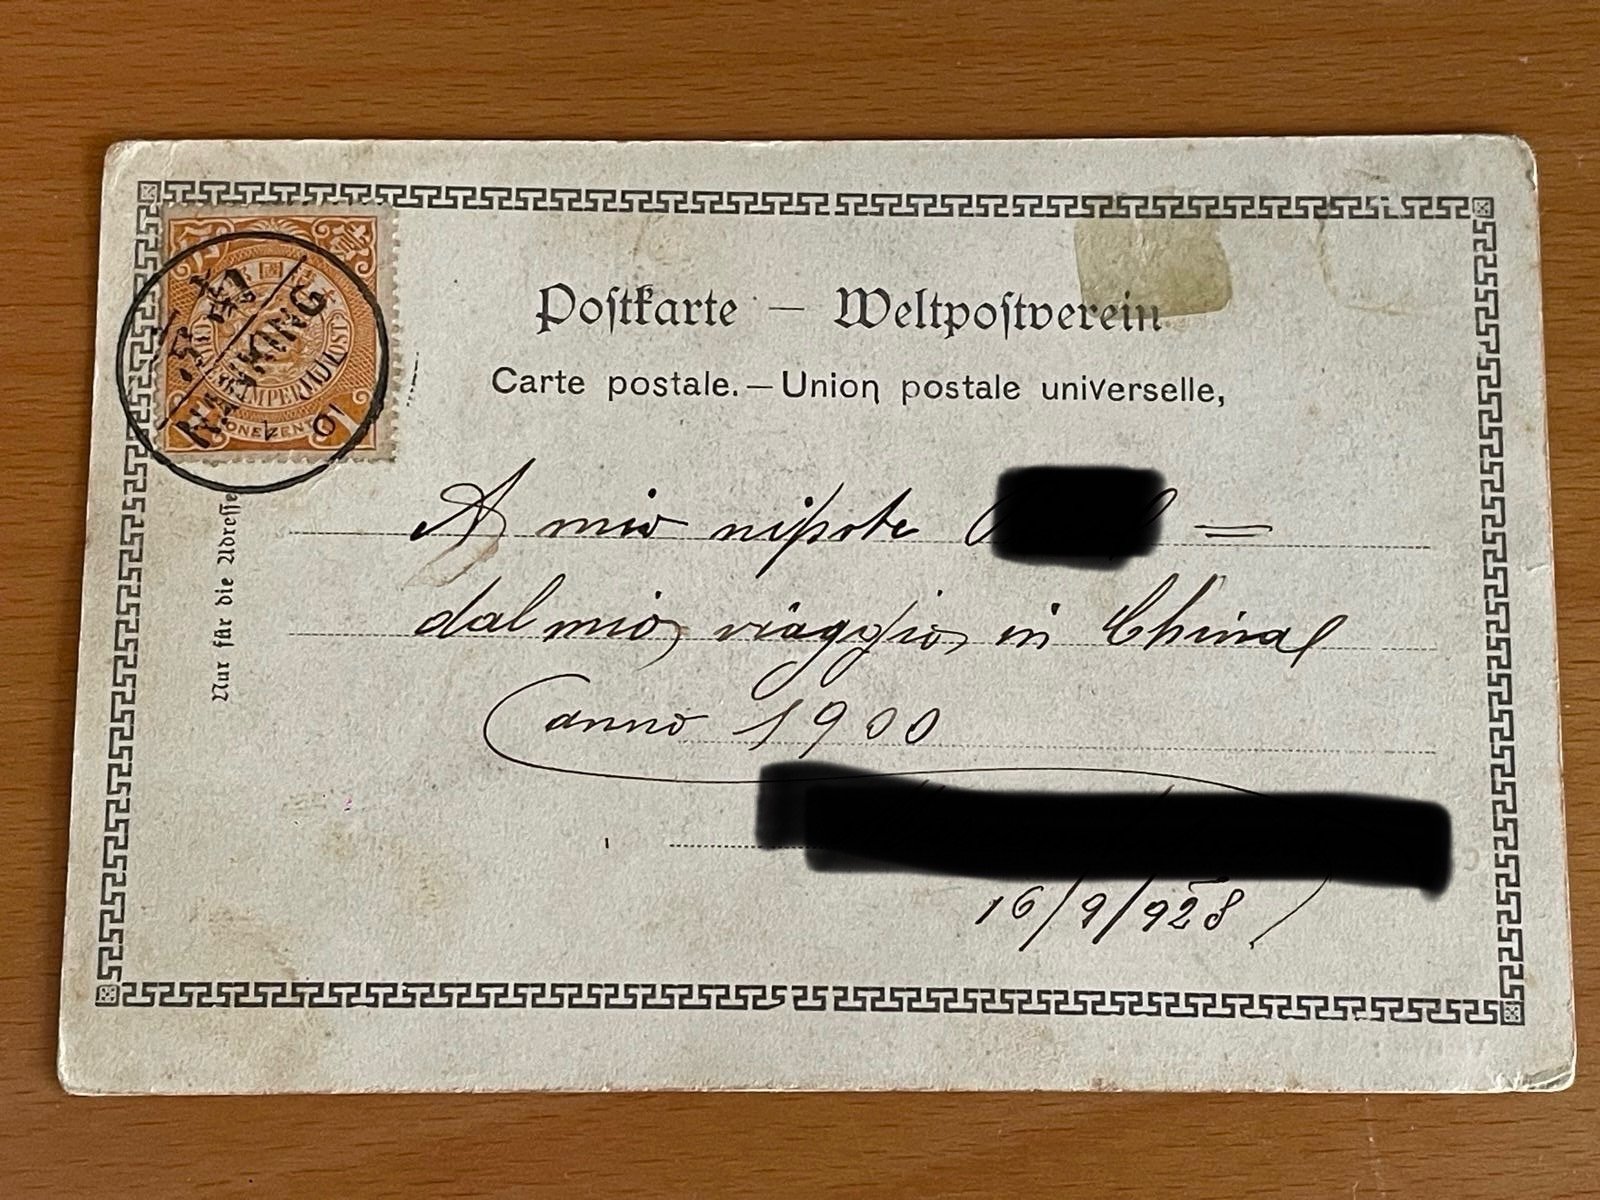 NANKING
IMPERIAL POST
ONE CENT
Postkarte — Weltpostverein
Carte postale. — Union postale universelle,
Nur für die Adresse
A mio nipote =
dal mio viaggio in China
(anno 1900
16/9/928)